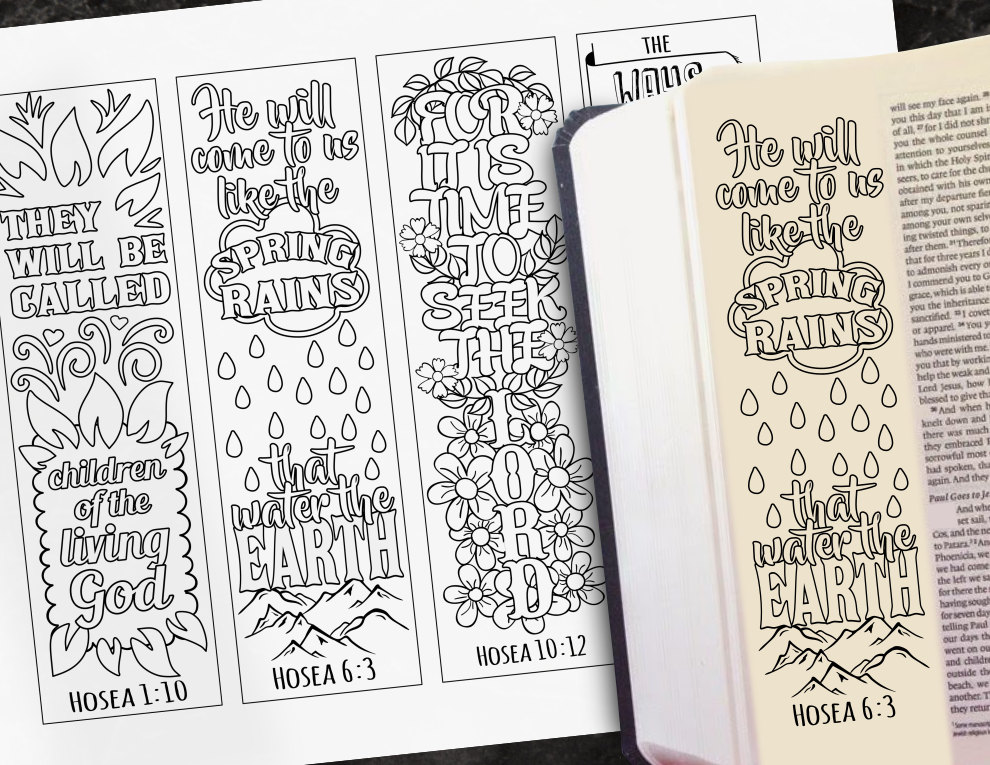 THEY
WILL BE
CALLED
children
of the
living
God
HOSEA 1:10
He will
come to us
like the
SPRING
RAINS
that
water the
EARTH
HOSEA 6:3
FOR
IT IS
TIME
TO
SEEK
THE
LORD
HOSEA 10:12
THE
WAYS
He will
come to us
like the
SPRING
RAINS
that
water the
EARTH
HOSEA 6:3
will see my face again.
you this day that I am
of all, 27 for I did not shr
you the whole counsel
attention to yourselves
in which the Holy Spir
seers, to care for the chu
obtained with his own
after my departure fier
among you, not sparin
among your own selve
ing twisted things, to
after them. 31 Therefor
that for three years I d
to admonish every o
I commend you to G
grace, which is able t
you the inheritance
sanctified. 33 I covet
or apparel. 34 You y
hands ministered to
who were with me.
you that by workin
help the weak and
Lord Jesus, how
blessed to give tha
36 And when h
knelt down and
there was much
they embraced
sorrowful most
had spoken, tha
again. And they
Paul Goes to Je
And whe
set sail,
Cos, and the ne
to Patara. 2 An
Phoenicia, we
we had come
the left we sa
for there the
having sough
for seven day
telling Paul
our days the
went on ou
and childre
outside the
beach, we
another. T
they retur